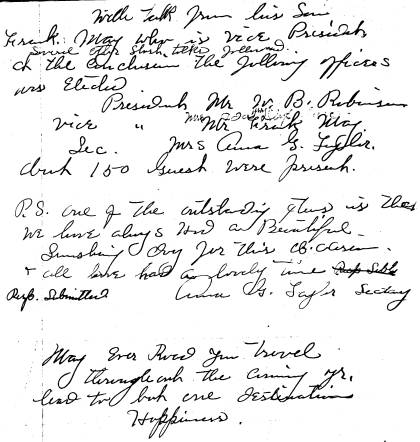 With Talk from his Son
Frank May who is Vice President
Several other short talks followed.
at the conclusion the following officers
was Elected
President Mr Jr. B. Robinson
Vice " Mr Frank May
Sec. Mrs Anna G. Taylor.
about 150 Guest were present.
P.S. one of the outstanding things is that
we have always Had a Beautiful
Sunshiny Day for this occasion.
+ all have had a lovely time
Resp. Submitted Anna G. Taylor Sectary
May Ever Road you travel
through out the coming yr.
lead to but one destination
Happiness.